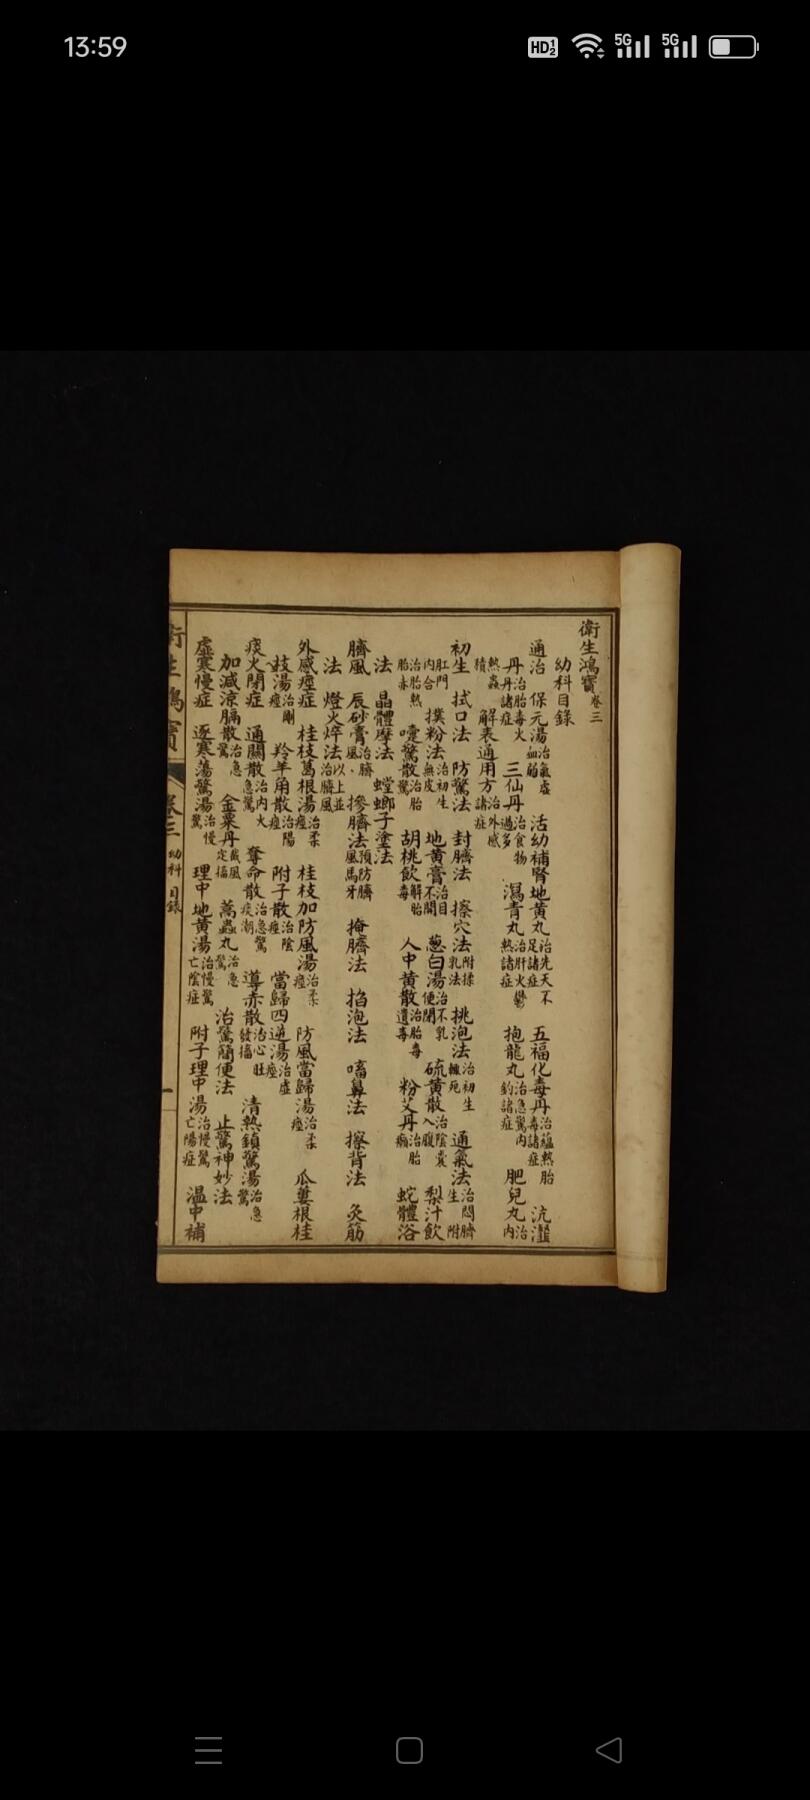 13:59
HD 1 2
5G
5G
衛生鴻寶卷三
幼科目錄
通治 保元湯治氣虛血弱 活幼補腎地黃丸治先天不足諸症 五福化毒丹治蘊熱胎毒諸症 沆瀣
丹治胎毒火丹諸症 三仙丹治食物過多 瀉青丸治肝火鬱熱諸症 抱龍丸治急驚內釣諸症 肥兒丸治內
熱蟲積 解表通用方治外感諸症
初生 拭口法 防驚法 封臍法 擦穴法附揉乳法 挑泡法治初生輒死 通氣法治悶臍生 附
肛門內合 撲粉法治初生無皮 地黃膏治目不開 蔥白湯治不乳便閉 硫黃散治陰囊入腹 梨汁飲
治胎熱胎赤 嚏驚散治胎驚 胡桃飲解胎毒 人中黃散治胎毒遺毒 粉艾丹治胎癩 蛇體浴
法 晶體摩法 螳螂子塗法
臍風 辰砂膏治臍風 摻臍法預防臍風馬牙 掩臍法 掐泡法 嗜鼻法 擦背法 灸筋
法 燈火焠法以上並治臍風
外感痙症 桂枝葛根湯治柔痙 桂枝加防風湯治柔痙 防風當歸湯治柔痙 瓜蔞根桂
枝湯治剛痙 羚羊角散治陽痙 附子散治陰痙 當歸四逆湯治虛痙
痰火閉症 通關散治內火急驚 奪命散治急驚痰潮 導赤散治心旺發搐 清熱鎮驚湯治急驚
加減涼膈散治急驚 金粟丹截風定搐 蒿蟲丸治急驚 治驚簡便法 止驚神妙法
虛寒慢症 逐寒蕩驚湯治慢驚 理中地黃湯治慢驚亡陰症 附子理中湯治慢驚亡陽症 溫中補
衛生鴻寶 卷三 幼科 目錄 一